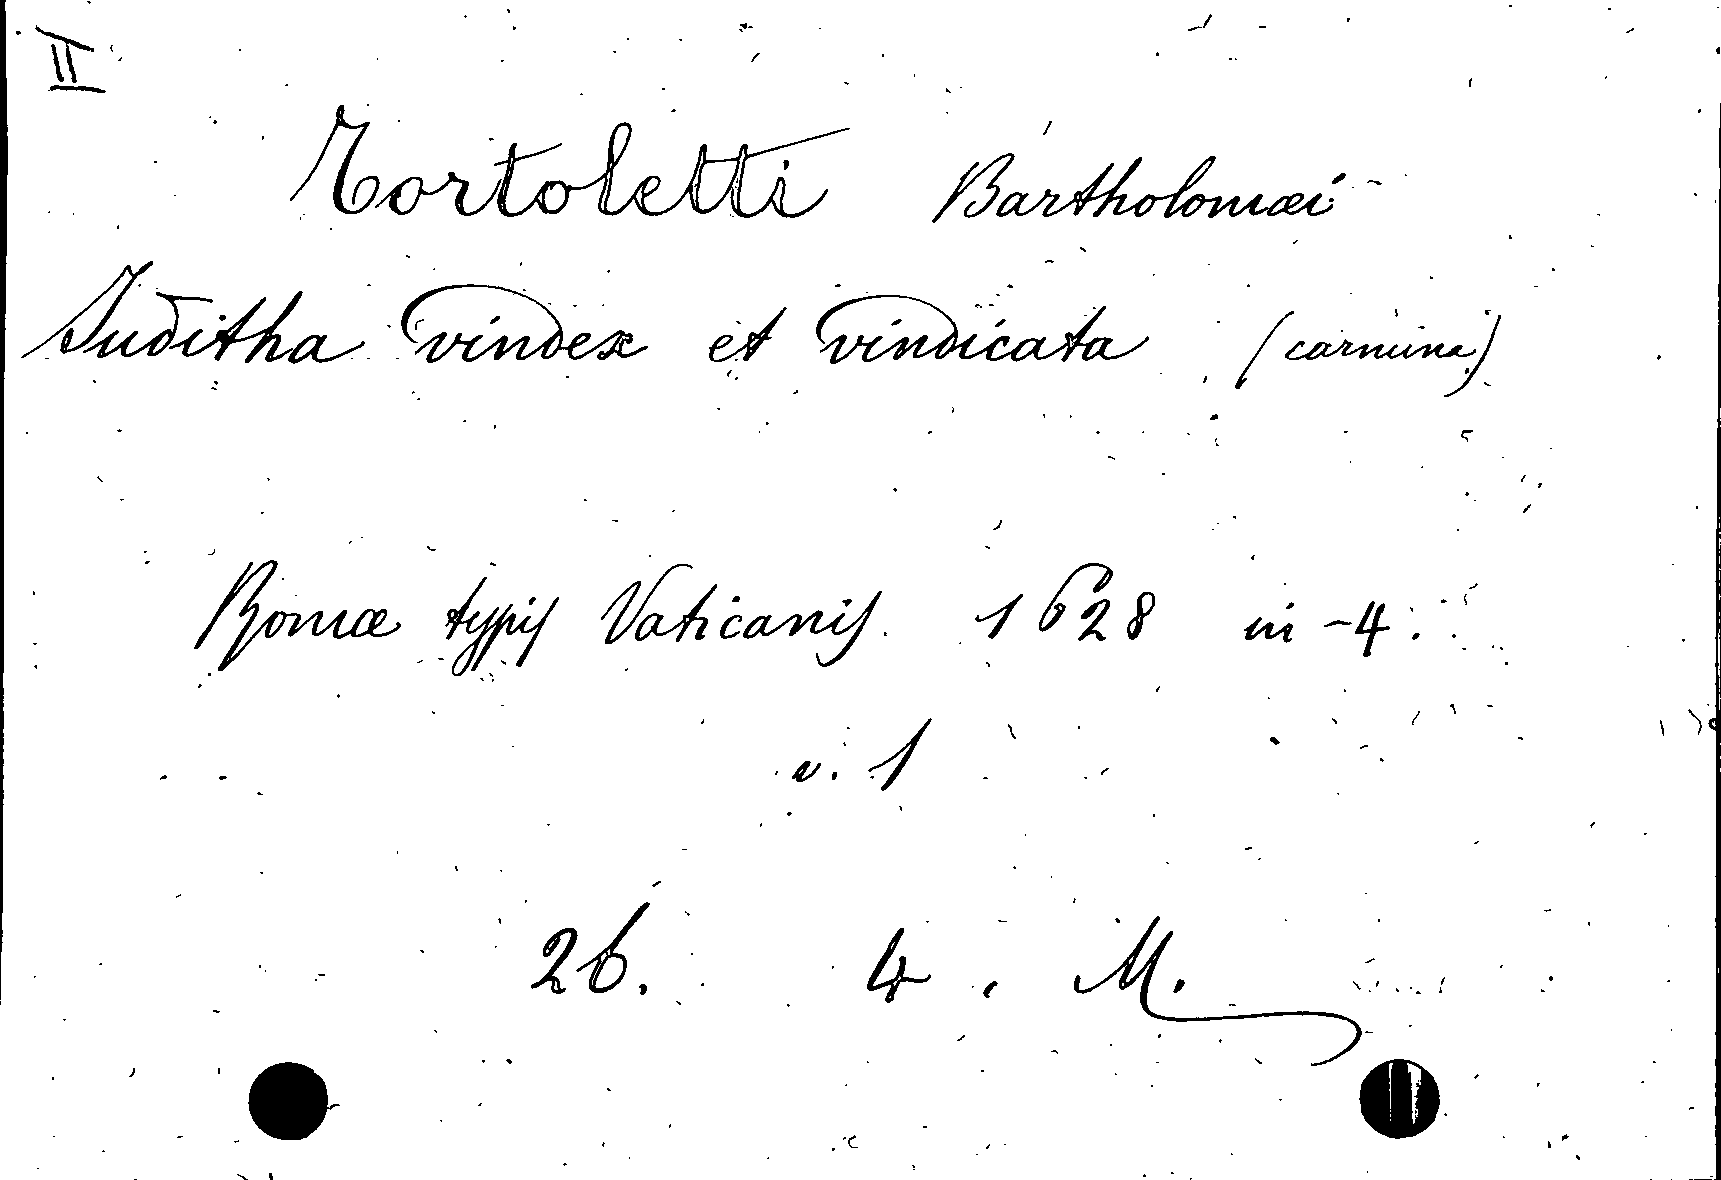 II
Tortoletti Bartholomæi
Juditha vindex et vindicata (carmina)
Romæ typis Vaticanis. 1628 in-4.
v. 1
26. 4. M.